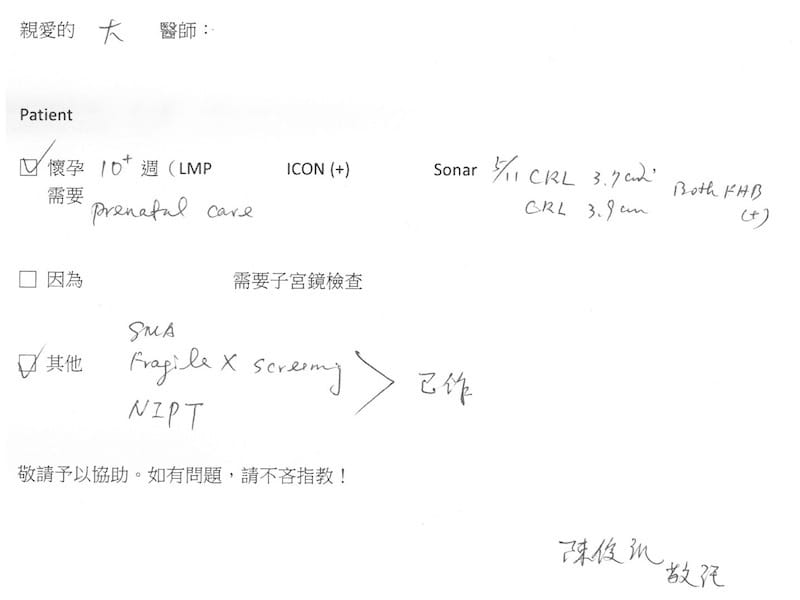 親愛的 大 醫師：
Patient
☑ 懷孕 10⁺ 週（LMP ICON (+) Sonar 5/11 CRL 3.7cm Both FHB
需要 prenatal care CRL 3.9cm (+)
☐ 因為 需要子宮鏡檢查
SMA
☑ 其他 Fragile X screening > 已作
NIPT
敬請予以協助。如有問題，請不吝指教！
陳俊
敬託